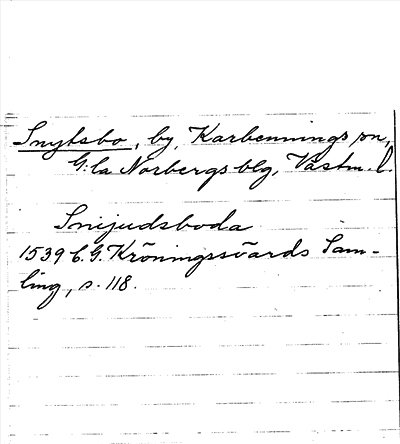 Snytsbo, by, Karbennings sn,
G:la Norbergs blg, Västm. l.
Snijudsboda
1539 C.G. Kröningssvärds Sam-
ling, s. 118.